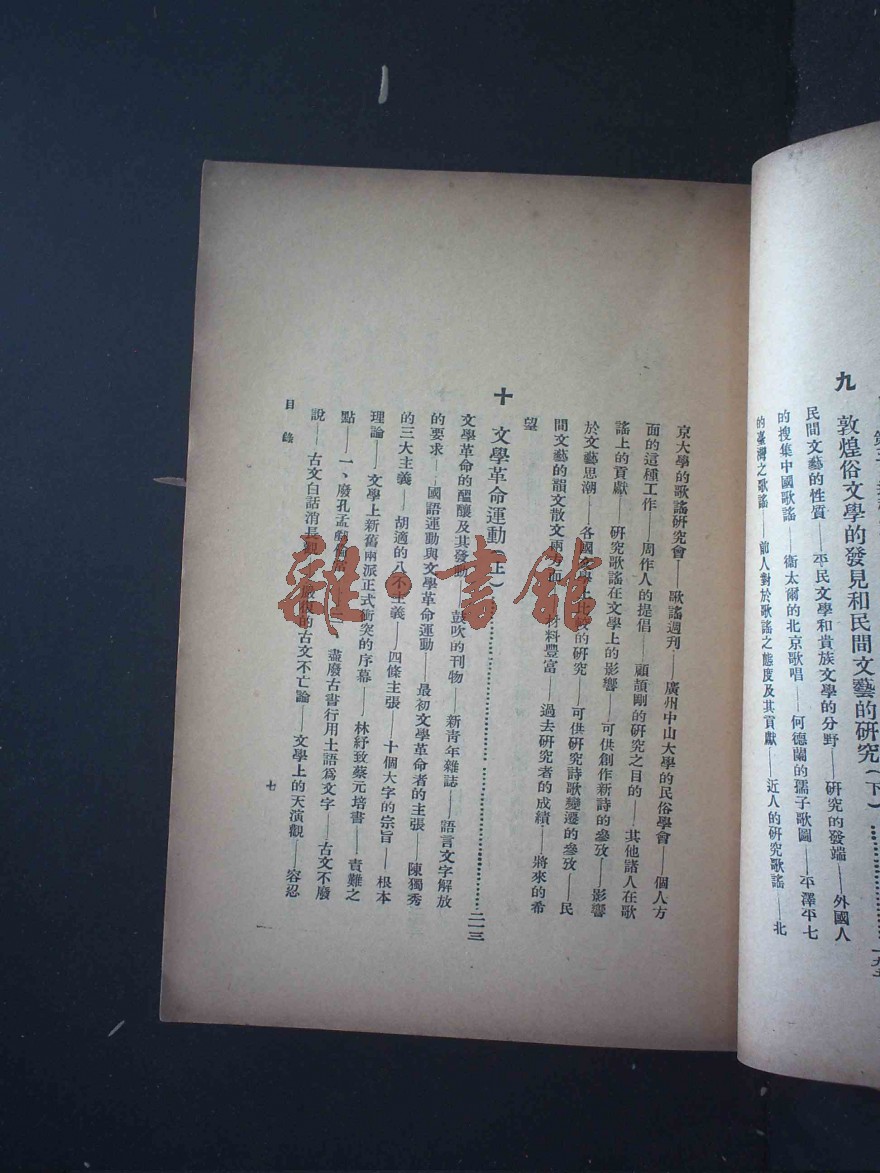 九
敦煌俗文學的發見和民間文藝的研究（下）
民間文藝的性質——平民文學和貴族文學的分野——研究的發端——外國人
的搜集中國歌謠——衞太爾的北京歌唱——何德蘭的孺子歌圖——平澤平七
的臺灣之歌謠——前人對於歌謠之態度及其貢獻——近人的研究歌謠——北
京大學的歌謠研究會——歌謠週刊——廣州中山大學的民俗學會——個人方
面的這種工作——周作人的提倡——顧頡剛的研究之目的——其他諸人在歌
謠上的貢獻——研究歌謠在文學上的影響——可供創作新詩的參攷——影響
於文藝思潮——各國文學上比較的研究——可供研究詩歌變遷的參攷——民
間文藝的韻文散文兩方面——材料豐富——過去研究者的成績——將來的希
望
十
文學革命運動（上）……二一三
文學革命的醞釀及其發動——鼓吹的刊物——新青年雜誌——語言文字解放
的要求——國語運動與文學革命運動——最初文學革命者的主張——陳獨秀
的三大主義——胡適的八不主義——四條主張——十個大字的宗旨——根本
理論——文學上新舊兩派正式衝突的序幕——林紓致蔡元培書——責難之
點——一、廢孔孟剷倫常——二、盡廢古書行用土語爲文字——古文不廢
說——古文白話消長觀——嚴復的古文不亡論——文學上的天演觀——容忍
目錄
七
雜·書館